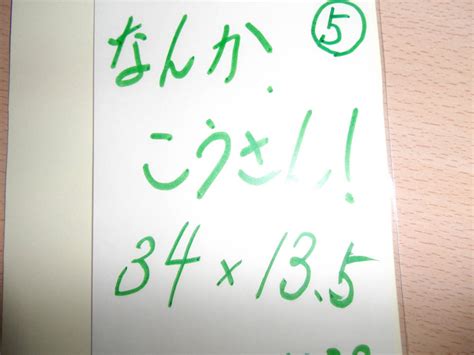 ⑤
なんか、
こうさん!
34×13.5